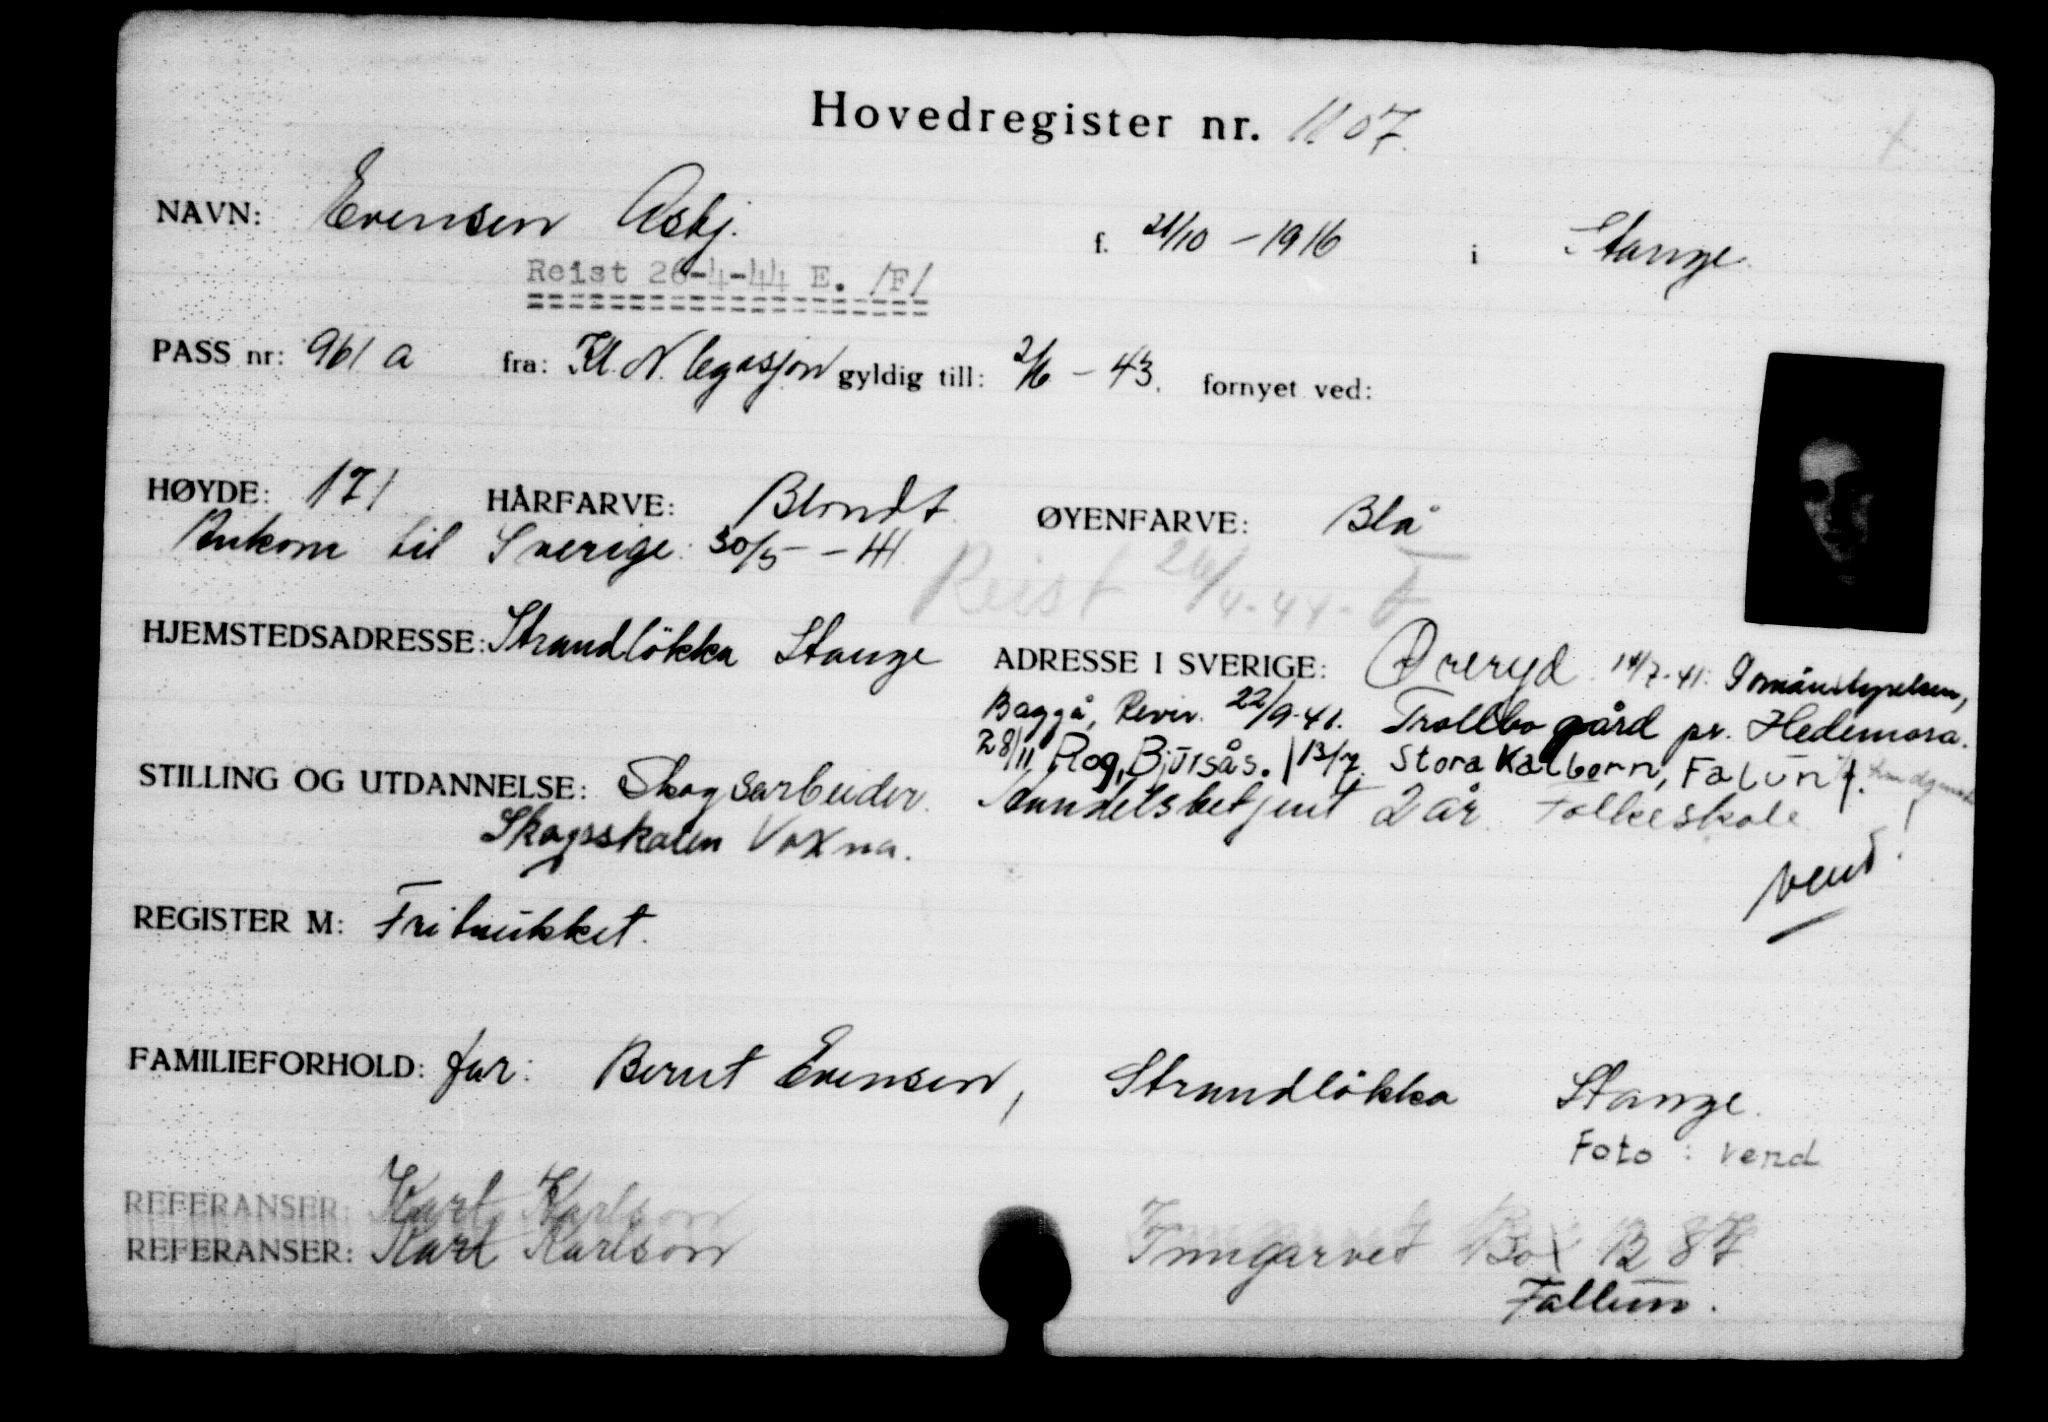 Hovedregister nr. 1107.
NAVN: Evensen Asbj. f. 21/10 - 1916 i Stange.
Reist 26-4-44 E. /F/
PASS nr: 961 a fra: Kl. N. legasjon gyldig till: 2/6 - 43. fornyet ved:
HØYDE: 171 HÅRFARVE: Blondt ØYENFARVE: Blå
Ankom til Sverige: 30/5 - 41.
Reist 26/4-44- F
HJEMSTEDSADRESSE: Strandlökka Stange ADRESSE I SVERIGE: Øreryd 14/7-41: Domänstyrelsen,
Baggå, Revir. 22/9-41. Trollbo gård pr. Hedemora.
28/11 Rog, Bjursås. 13/7. Stora Kalborn, Falun.
STILLING OG UTDANNELSE: Skogsarbeider. Handelsbetjent 2 år. Folkeskole
Skogsskolen Voxna.
vend!
REGISTER M: Tribukket.
FAMILIEFORHOLD: far: Bernt Evensen, Strandlökka Stange.
Foto: vend
REFERANSER: Karl Karlson
REFERANSER: Karl Karlson Inngarvet Box B 87
Fallun.